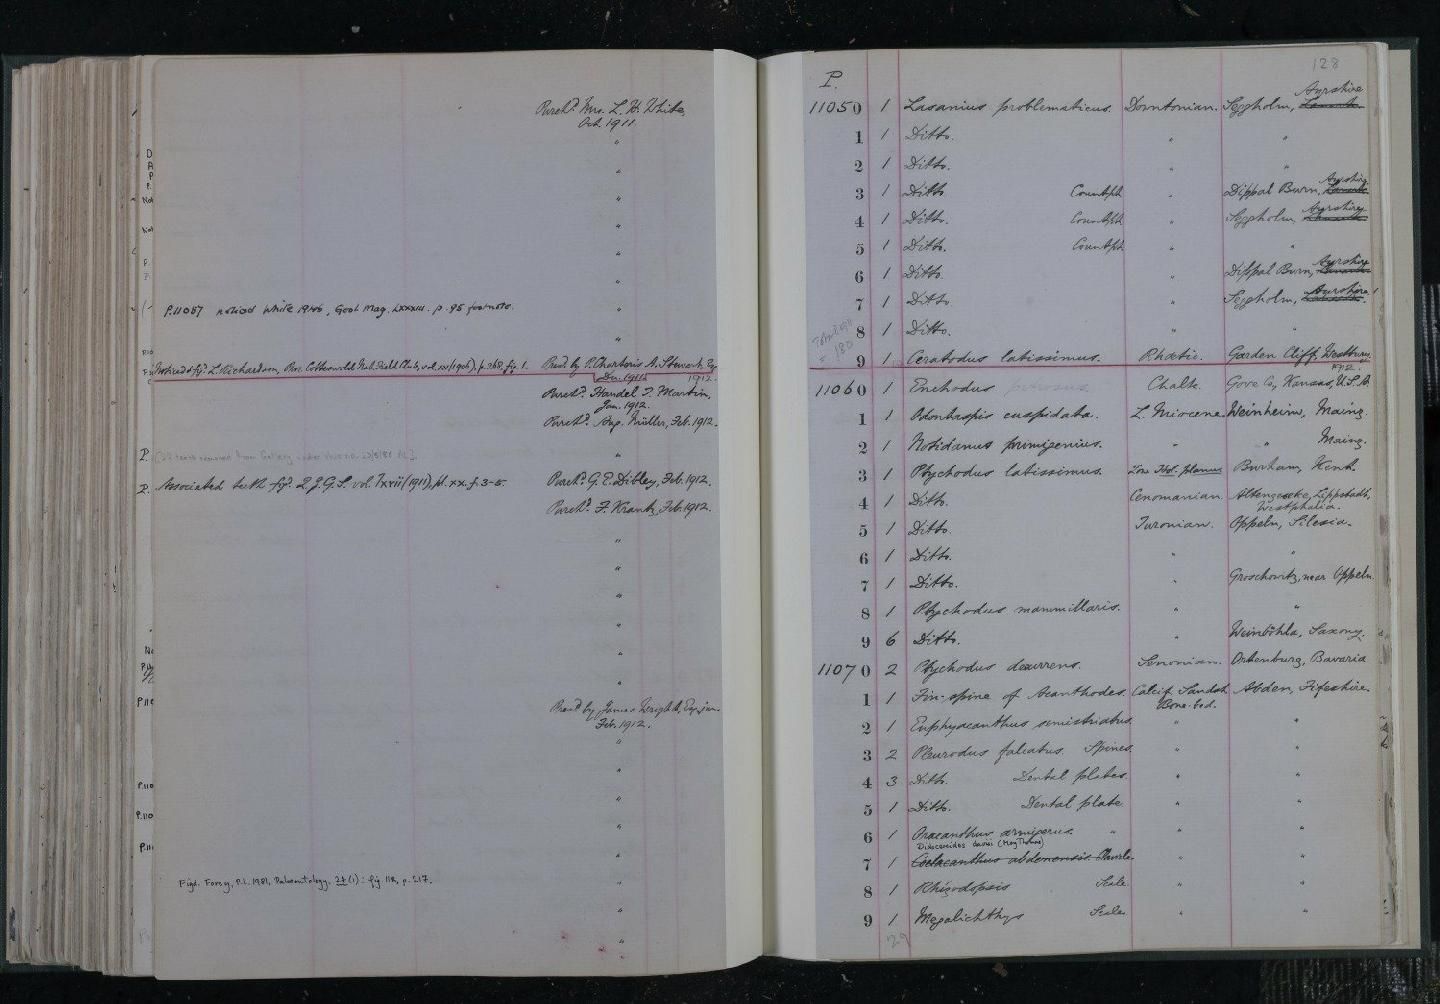 Purchd. Mrs. L. H. White,
Oct. 1911.
P.11057 noticed White 1946, Geol. Mag. LXXXIII. p. 95 footnote.
Noticed & figd. L. Richardson, Proc. Cotteswold Nat. Field Club, vol. xv (1906), p. 268, fig. 1. Presd. by P. Charteris A. Stewart, Esq.
Dec. 1911. 1912.
Purchd. Handel T. Martin,
Jan. 1912.
Purchd. Aug. Müller, Feb. 1912.
P.
P. Associated teeth figd. Q.J.G.S. vol. lxvii (1911), pl. xx. f. 3-5. Purchd. G. E. Dibley, Feb. 1912.
Purchd. F. Krantz, Feb. 1912.
Presd. by James Wright, Esq., jun.
Feb. 1912.
Figd. Forey, P.L. 1981, Palaeontology. 24 (1): fig 11B, p. 217.
128
P.
Ayrshire
11050 1 Lasanius problematicus. Downtonian. Seggholm, Lanark.
1 1 Ditto. " "
2 1 Ditto. " "
Ayrshire
3 1 Ditto Countpt. " Dippal Burn, Lanark.
Ayrshire
4 1 Ditto. Countpt. " Seggholm, Lanark.
5 1 Ditto. Countpt. " "
Ayrshire
6 1 Ditto " Dippal Burn, Lanark.
Ayrshire
7 1 Ditto " Seggholm, Lanark.
8 1 Ditto. " "
Total 1911
= 180
9 1 Ceratodus latissimus. Rhætic. Garden Cliff, Westbury.
1912.
11060 1 Enchodus petrosus Chalk. Gove Co, Kansas, U.S.A.
1 1 Odontaspis cuspidata. L. Miocene Weinheim, Mainz.
2 1 Notidanus primigenius. " " Mainz.
3 1 Ptychodus latissimus. Zone Hol. planus Burham, Kent.
4 1 Ditto. Cenomanian. Altengeseke, Lippstadt,
Westphalia.
5 1 Ditto Turonian. Oppeln, Silesia.
6 1 Ditto. " "
7 1 Ditto. " Groschowitz, near Oppeln.
8 1 Ptychodus mammillaris. " "
9 6 Ditto. " Weinböhla, Saxony.
11070 2 Ptychodus decurrens. Senonian. Ortenburg, Bavaria
1 1 Fin-spine of Acanthodes. Calcif. Sandst. Abden, Fifeshire.
Bone-bed.
2 1 Euphyacanthus semistriatus. " "
3 2 Pleurodus falcatus. Spines. " "
4 3 Ditto. Dental plates. " "
5 1 Ditto. Dental plate. " "
6 1 Oracanthus armigerus. " " "
Diploceroides davisi (Moy-Thomas)
7 1 Coelacanthus abdenensis. " "
8 1 Rhizodopsis Scale. " "
9 1 Megalichthys Scale. " "
29